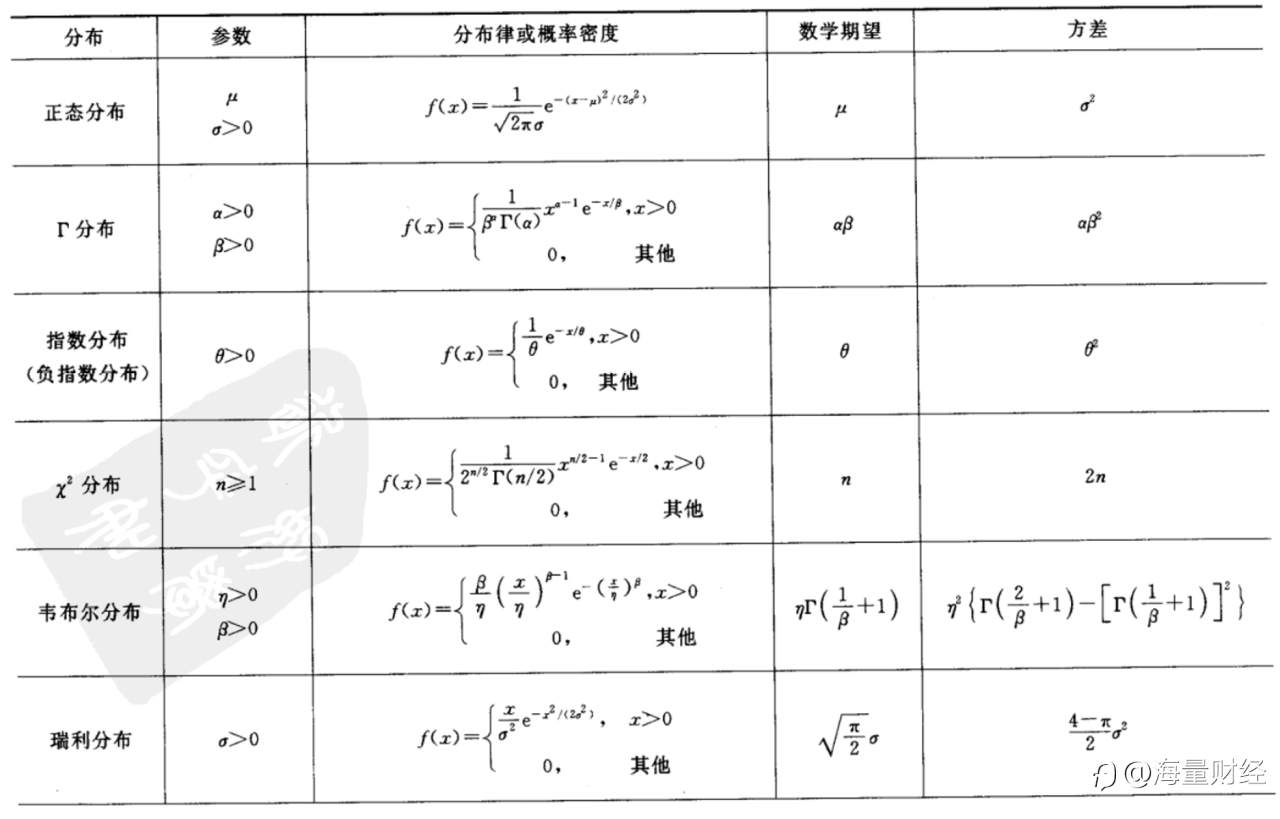 分布 参数 分布律或概率密度 数学期望 方差
正态分布 μ σ>0 f(x)=1/(√(2π)σ) e^{-(x-μ)²/(2σ²)} μ σ²
Γ分布 α>0 β>0 f(x)={1/(β^α Γ(α)) x^{α-1} e^{-x/β}, x>0
0, 其他 αβ αβ²
指数分布
(负指数分布) θ>0 f(x)={1/θ e^{-x/θ}, x>0
0, 其他 θ θ²
χ² 分布 n⩾1 f(x)={1/(2^{n/2} Γ(n/2)) x^{n/2-1} e^{-x/2}, x>0
0, 其他 n 2n
韦布尔分布 η>0 β>0 f(x)={β/η (x/η)^{β-1} e^{-(x/η)^β}, x>0
0, 其他 ηΓ(1/β+1) η²{Γ(2/β+1)-[Γ(1/β+1)]²}
瑞利分布 σ>0 f(x)={x/σ² e^{-x²/(2σ²)}, x>0
0, 其他 √(π/2) σ (4-π)/2 σ²
@海量财经